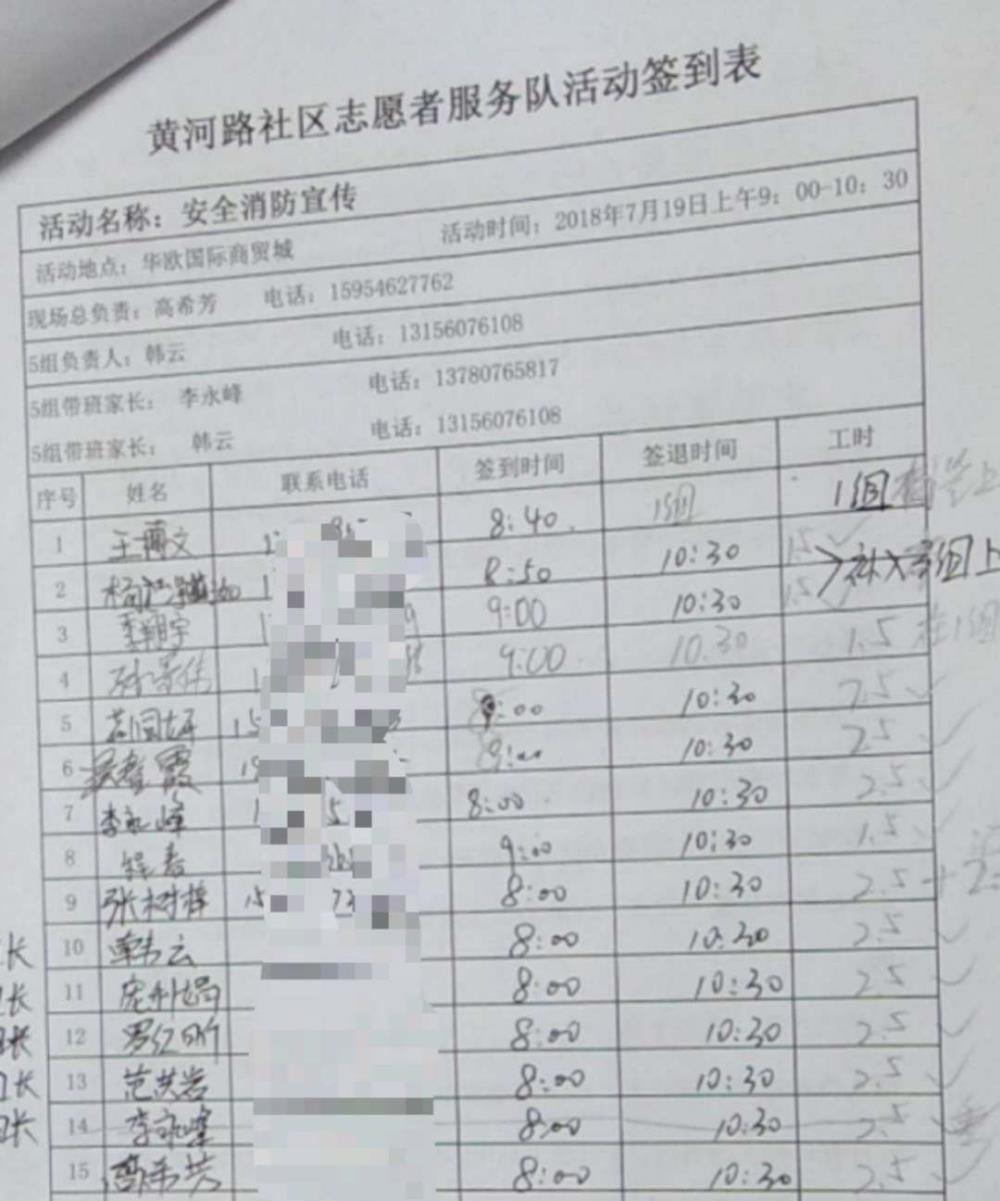 黄河路社区志愿者服务队活动签到表
活动名称：安全消防宣传
活动地点：华欧国际商贸城 活动时间：2018年7月19日上午9：00-10：30
现场总负责：高希芳 电话：15954627762
5组负责人：韩云 电话：13156076108
5组带班家长： 李永峰 电话：13780765817
5组带班家长： 韩云 电话：13156076108
序号 姓名 联系电话 签到时间 签退时间 工时
1 王博文 8:40 1组 1组
2 8:50 10:30 1.5 补入 组上
3 李翔宇 9:00 10:30 1.5
4 9:00 10:30 1.5 在1组
5 15 8:00 10:30 2.5
6 霞 8:00 10:30 2.5
7 李永峰 8:00 10:30 2.5
8 程春 9:00 10:30 1.5
9 张树梓 15 73 8:00 10:30 2.5
长 10 韩云 8:00 10:30 2.5
长 11 8:00 10:30 2.5
长 12 8:00 10:30 2.5
长 13 范洪岩 8:00 10:30 2.5
长 14 李永峰 8:00 10:30 2.5
15 高希芳 8:00 10:30 2.5